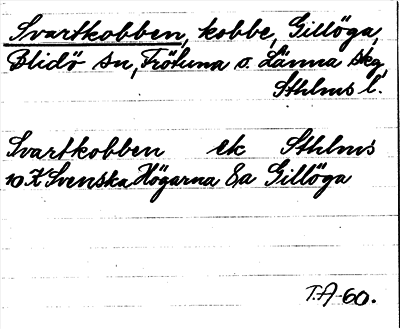 Svartkobben, kobbe, Gillöga,
Blidö sn, Frötuna o. Länna skg
Sthlms l.
Svartkobben ek Sthlms
10 K Svenska Högarna &a Gillöga
T.A-60.